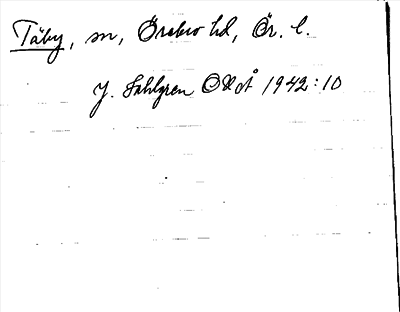 Täby, sn, Örebro hd, Ör. l.
J. Sahlgren OUÅ 1942:10